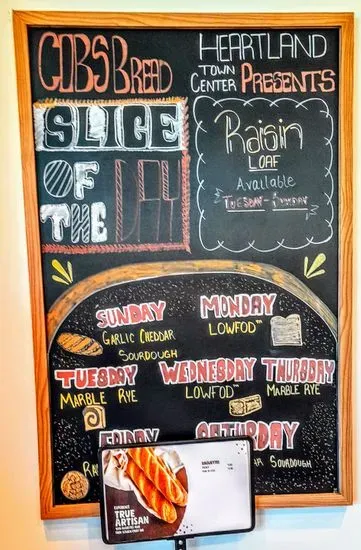 COBS BREAD
HEARTLAND
TOWN
CENTER PRESENTS
SLICE
OF
THE
DAY
Raisin
LOAF
Available
SUNDAY
GARLIC CHEDDAR
SOURDOUGH
MONDAY
LOWFOD™
TUESDAY
MARBLE RYE
WEDNESDAY
LOWFOD™
THURSDAY
MARBLE RYE
FRIDAY
SATURDAY
SOURDOUGH
EXPERIENCE
TRUE
ARTISAN